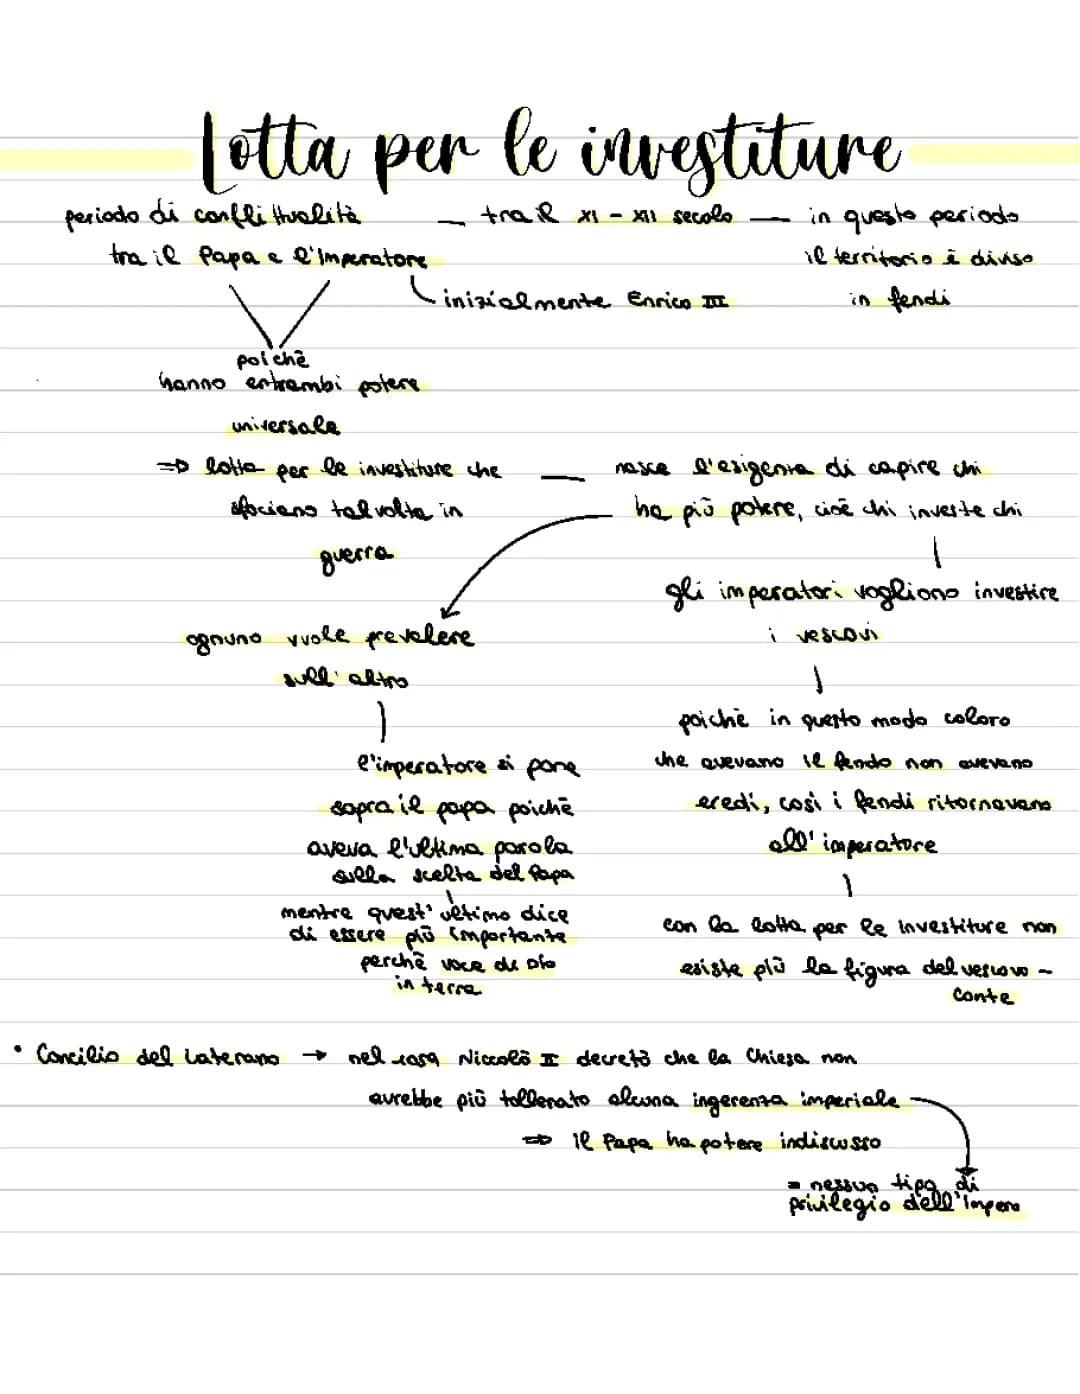 Lotta per le investiture
periodo di conflittualità — tra il XI - XII secolo — in questo periodo
tra il Papa e l'Imperatore
il territorio è diviso
inizialmente Enrico III
in feudi
poichè
hanno entrambi potere
universale
=> lotta per le investiture che
sfociano talvolta in
guerra
— nasce l'esigenza di capire chi
ha più potere, cioè chi investe chi
gli imperatori vogliono investire
i vescovi
poichè in questo modo coloro
che avevano il feudo non avevano
eredi, così i feudi ritornavano
all'imperatore
con la lotta per le investiture non
esiste più la figura del vescovo -
conte
ognuno vuole prevalere
sull'altro
l'imperatore si pone
sopra il papa poichè
aveva l'ultima parola
sulla scelta del Papa
mentre quest'ultimo dice
di essere più importante
perchè voce di Dio
in terra
• Concilio del Laterano → nel 1059 Niccolò II decretò che la Chiesa non
avrebbe più tollerato alcuna ingerenza imperiale
=> il Papa ha potere indiscusso
= nessun tipo di
privilegio dell'Impero